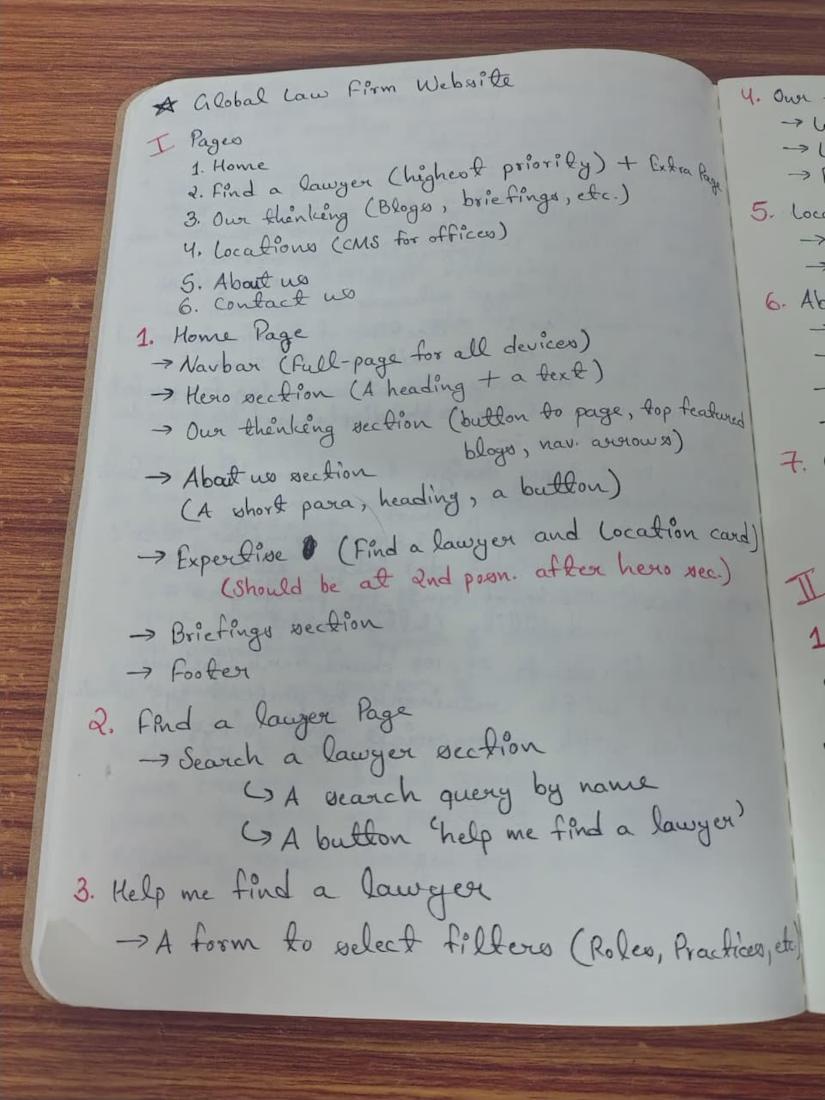 ☆ Global Law Firm Website
I Pages
1. Home
2. Find a lawyer (highest priority) + Extra Page
3. Our thinking (Blogs, briefings, etc.)
4. Locations (CMS for offices)
5. About us
6. Contact us
1. Home Page
→ Navbar (Full-page for all devices)
→ Hero section (A heading + a text)
→ Our thinking section (button to page, top featured
blogs, nav. arrows)
→ About us section
(A short para, heading, a button)
→ Expertise (Find a lawyer and Location card)
(Should be at 2nd posn. after hero sec.)
→ Briefings section
→ Footer
2. Find a lawyer Page
→ Search a lawyer section
↳ A search query by name
↳ A button 'help me find a lawyer'
3. Help me find a lawyer
→ A form to select filters (Roles, Practices, etc)
4. Our
→
→
→
5.
→
→
6.
7.
II
1